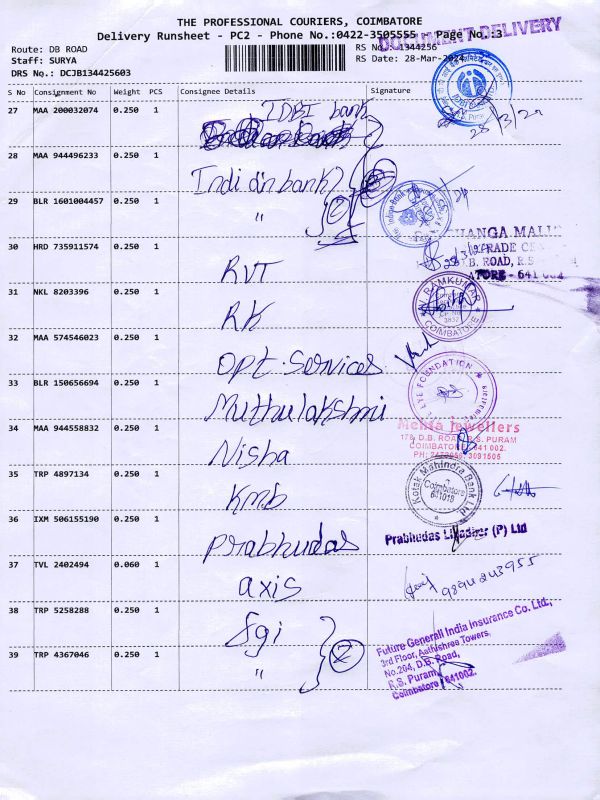 THE PROFESSIONAL COURIERS, COIMBATORE
Delivery Runsheet - PC2 - Phone No.:0422-3505555 Page No.:3
DOCUMENT DELIVERY
Route: DB ROAD
RS No.: 1344256
Staff: SURYA
RS Date: 28-Mar-2024
DRS No.: DCJB134425603
S No Consignment No Weight PCS Consignee Details Signature
27 MAA 200032074 0.250 1 IDBI bank
28/3/24
28 MAA 944496233 0.250 1 Indian bank
29 BLR 1601004457 0.250 1 " 2
30 HRD 735911574 0.250 1 RVT
TRADE
B. ROAD, R.S
31 NKL 8203396 0.250 1 RK
RAMKUMAR
COIMBATORE
32 MAA 574546023 0.250 1 Opt. Services
EYE FOUNDATION
33 BLR 150656694 0.250 1 Muthulakshmi
34 MAA 944558832 0.250 1 Nisha
Mehta Jewellers
178, D.B. ROAD, R.S. PURAM
COIMBATORE - 641 002.
35 TRP 4897134 0.250 1 KMB
Kotak Mahindra Bank Ltd
Coimbatore
641018
36 IXM 506155190 0.250 1 Prabhudas
Prabhudas Liladher (P) Ltd
37 TVL 2402494 0.060 1 axis
9894243955
38 TRP 5258288 0.250 1 fgi
39 TRP 4367046 0.250 1 " 2
Future Generali India Insurance Co. Ltd.,
3rd Floor, Aathishree Towers,
No.204, D.B. Road,
R.S. Puram,
Coimbatore - 641002.